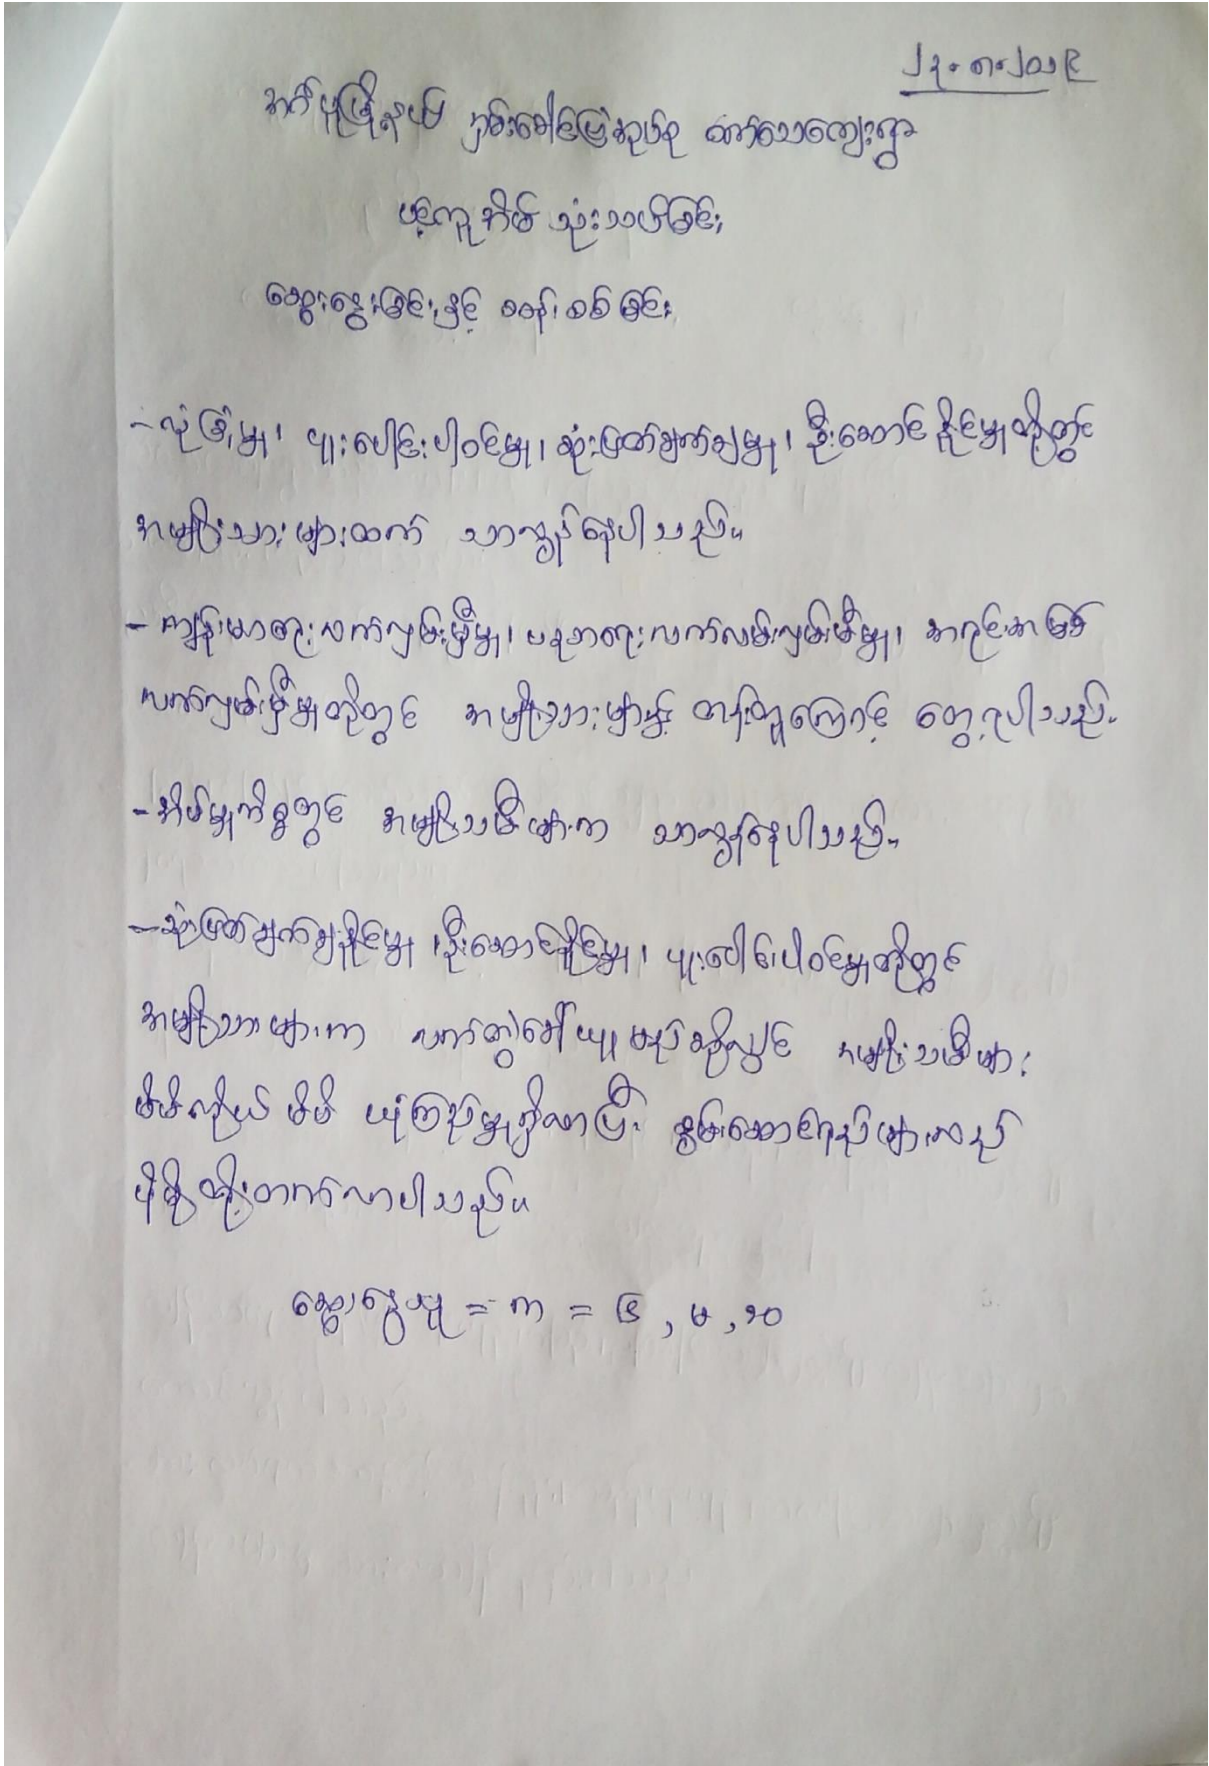 ၂၃.၈.၂၀၁၉
အင်ပူမြို့နယ် ရှမ်းခေါင်မြှောင်အုပ်စု ကျေးရွာ
ပင့်ကူအိမ် သုံးသပ်ခြင်း
ဆွေးနွေးခြင်းနှင့် စဝန်းစစ်ခြင်း
-လုံခြုံမှု၊ ပူးပေါင်းပါဝင်မှု၊ ဆုံးဖြတ်ချက်ချမှု၊ ဦးဆောင်နိုင်မှုတို့တွင်
အမျိုးသားများထက် သာလွန်နေပါသည်။
- ကျန်းမာရေးလက်လှမ်းမှီမှု၊ ပညာရေးလက်လမ်းလှမ်းမီမှု၊ အရင်းအမြစ်
လက်လှမ်းမှီမှုတို့တွင် အမျိုးသားများနှင့် တန်းတူကြောင့် တွေ့ရပါသည်။
-အိမ်မှုကိစ္စတွင် အမျိုးသမီးများက သာလွန်နေပါသည်။
-ဆုံးဖြတ်ချက်ချနိုင်မှု၊ ဦးဆောင်နိုင်မှု၊ ပူးပေါင်းပါဝင်မှုတို့တွင်
အမျိုးသားများက လက်တွဲခေါ်ယူမည်ဆိုလျှင် အမျိုးသမီးများ
မိမိကိုယ်မိမိ ယုံကြည်မှုရှိလာပြီး စွမ်းဆောင်ရည်များလည်
ပိုမိုတိုးတက်လာပါသည်။
ဆွေးနွေးသူ = ကျား = ၆, မ, ၁၀